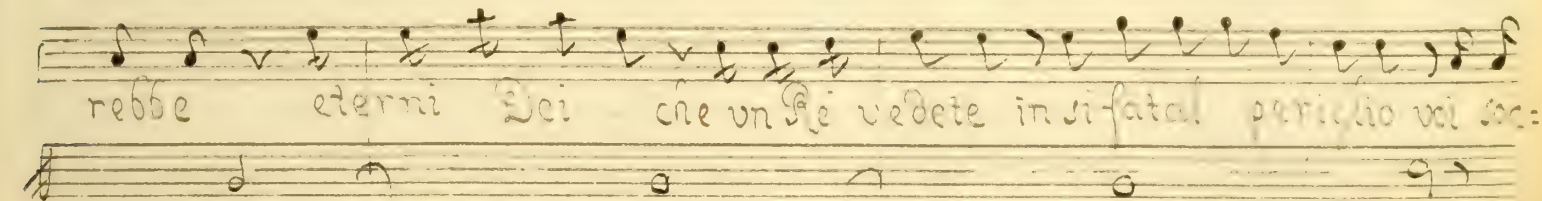 rebbe eterni Dei che vn Re vedete in si fatal periglio voi soc=